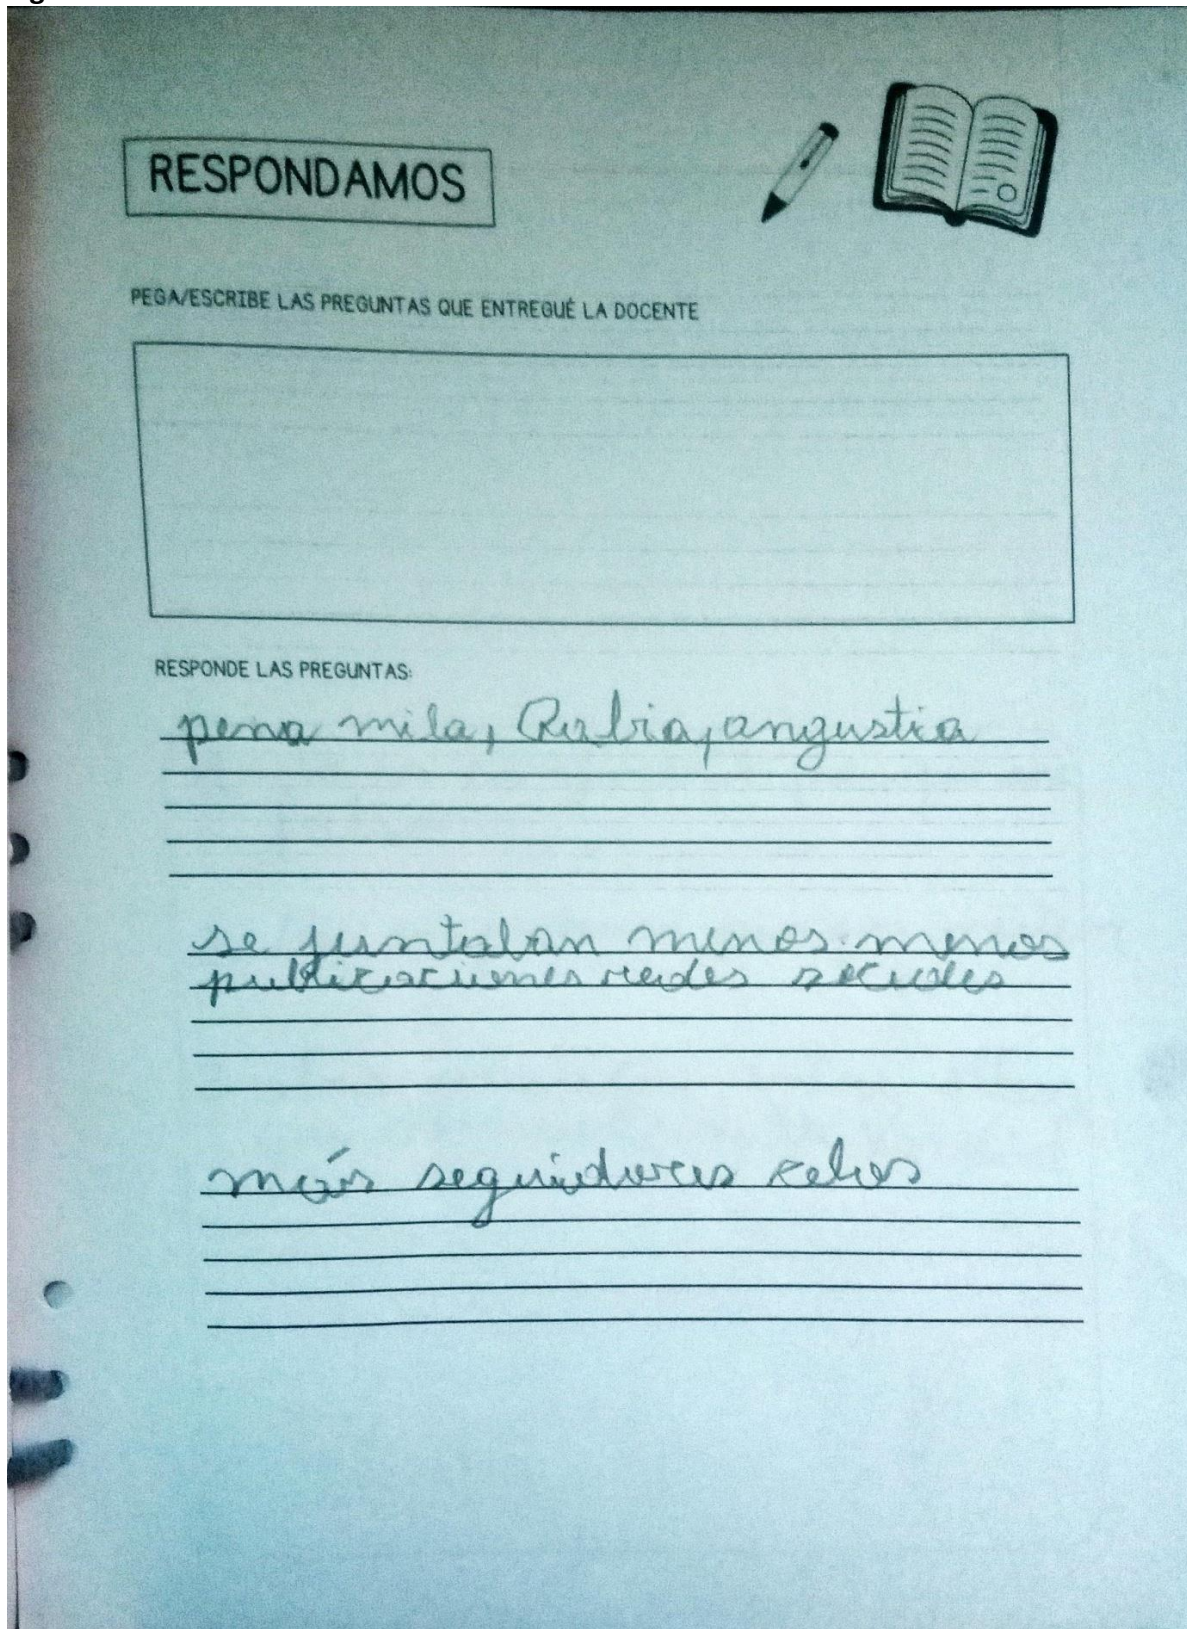 RESPONDAMOS
PEGA/ESCRIBE LAS PREGUNTAS QUE ENTREGUÉ LA DOCENTE
RESPONDE LAS PREGUNTAS:
pena mila, Rabia, angustia
se juntaban menos. menos
publicaciones redes sociales
más seguidores celos